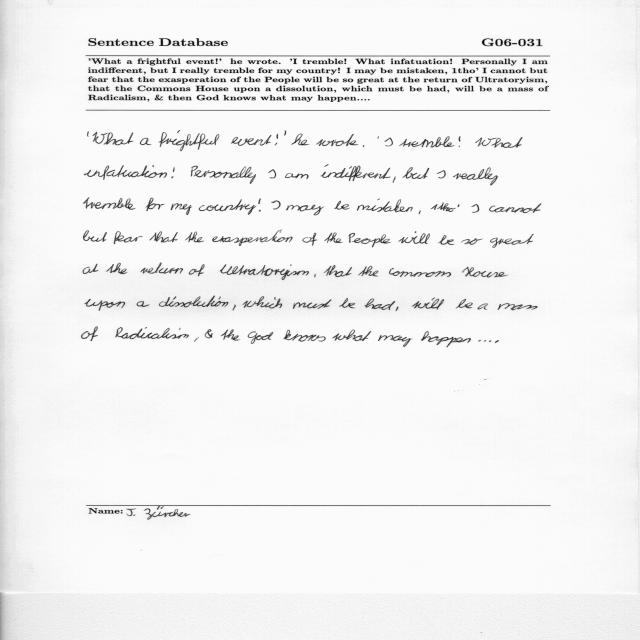 Sentence Database G06-031
'What a frightful event!' he wrote. 'I tremble! What infatuation! Personally I am
indifferent, but I really tremble for my country! I may be mistaken, 1tho' I cannot but
fear that the exasperation of the People will be so great at the return of Ultratoryism,
that the Commons House upon a dissolution, which must be had, will be a mass of
Radicalism, & then God knows what may happen....
'What a frightful event!' he wrote. 'I tremble! What
infatuation! Personally I am indifferent, but I really
tremble for my country! I may be mistaken, 1tho' I cannot
but fear that the exasperation of the People will be so great
at the return of Ultratoryism, that the Commons House
upon a dissolution, which must be had, will be a mass
of Radicalism, & the God knows what may happen ....
Name: J. Zürcher